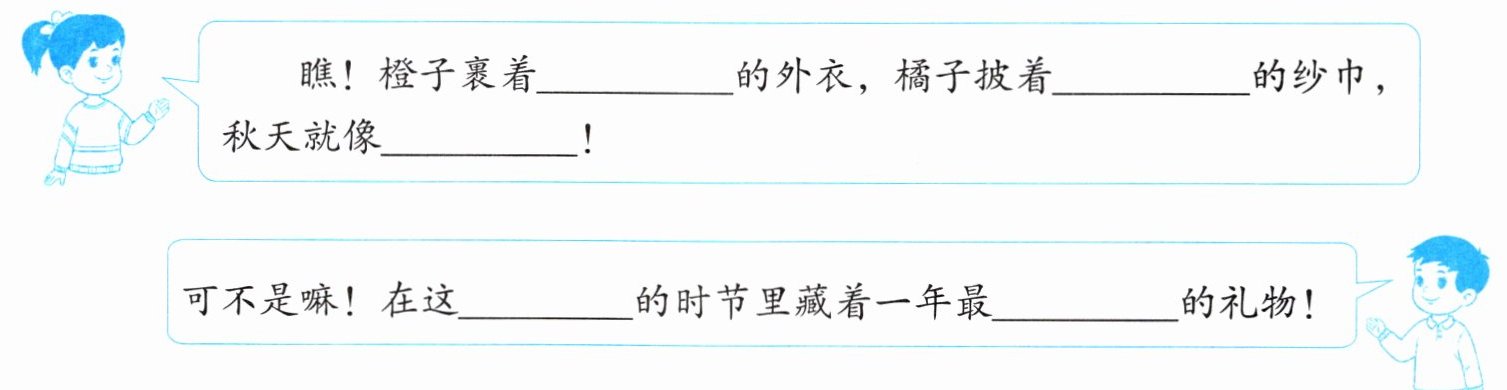 瞧！橙子裹着__________的外衣，橘子披着__________的纱巾，
秋天就像__________！
可不是嘛！在这_________的时节里藏着一年最_________的礼物！